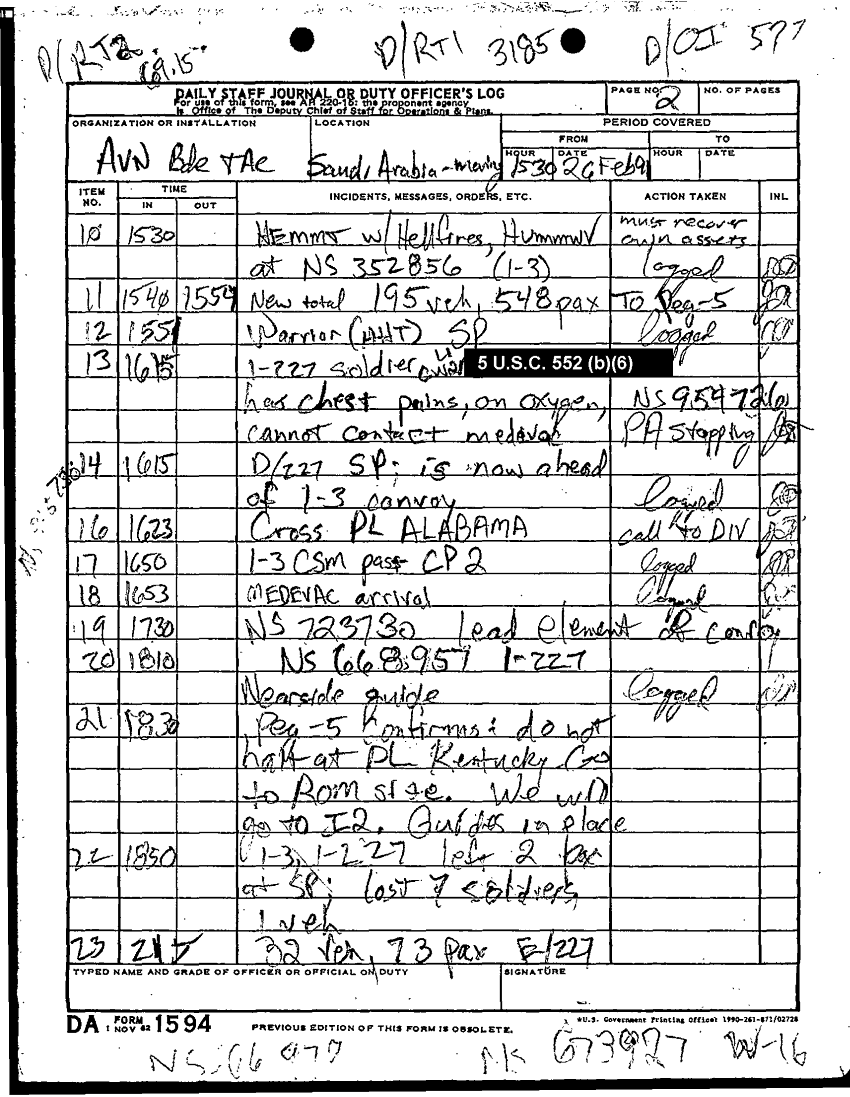 D/RT2
69.15
D/RT1 3185
D/OI 577
DAILY STAFF JOURNAL OR DUTY OFFICER'S LOG
For use of this form, see AR 220-15; the proponent agency
is Office of The Deputy Chief of Staff for Operations & Plans.
PAGE NO. 2
NO. OF PAGES
ORGANIZATION OR INSTALLATION
LOCATION
PERIOD COVERED
FROM
TO
HOUR DATE HOUR DATE
AVN Bde TAC Saudi Arabia-moving 1530 26 Feb 91
ITEM NO.
TIME
IN OUT
INCIDENTS, MESSAGES, ORDERS, ETC.
ACTION TAKEN
INL
10 1530 HEMMT w/ Hellfires, HUMMWV must recover own assets
at NS 352856 (1-3) logged
11 1540 1554 New total 195 veh, 548 pax To Peg-5
12 1551 Warrior (HHT) SP logged
13 1615 1-227 soldier CW2 5 U.S.C. 552 (b)(6)
has chest pains, on oxygen, NS 954726
cannot contact medevac PA stopping
14 1615 D/227 SP; is now ahead
of 1-3 convoy logged
16 1623 Cross PL ALABAMA call to DIV
17 1650 1-3 CSM pass CP 2 logged
18 1653 MEDEVAC arrival logged
19 1730 NS 723730 lead element of convoy
20 1810 NS 668957 1-227
Nearside guide logged
21 1830 Peg-5 Konfirms: do not
halt at PL Kentucky Go
to ROM site. We will
go to I2. Guides in place
22 1850 1-3, 1-227 left 2 pax
at SP; lost 7 soldiers,
1 veh
23 2115 32 veh, 73 pax E/227
TYPED NAME AND GRADE OF OFFICER OR OFFICIAL ON DUTY
SIGNATURE
DA FORM 1 NOV 62 1594
PREVIOUS EDITION OF THIS FORM IS OBSOLETE.
*U.S. Government Printing Office: 1990-261-871/02728
NS 673927 W-16